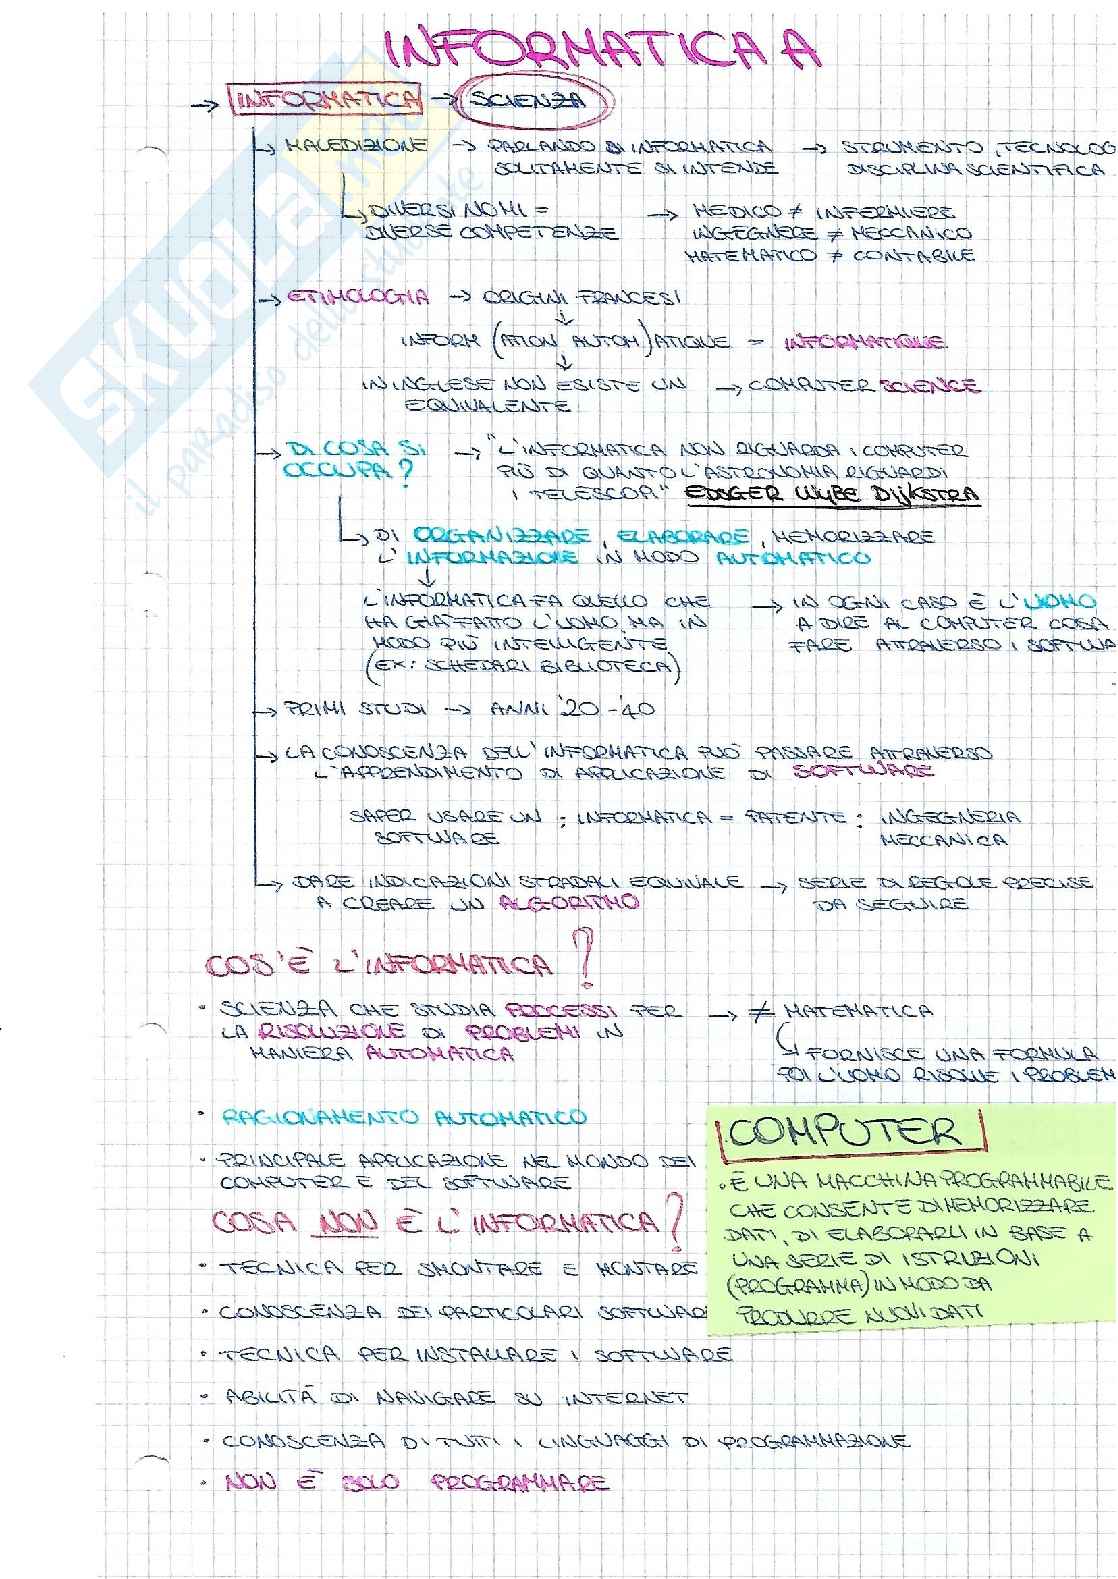 INFORMATICA A
→ INFORMATICA → SCIENZA
↳ MALEDIZIONE → PARLANDO DI INFORMATICA → STRUMENTO, TECNOLOG
SOLITAMENTE SI INTENDE DISCIPLINA SCIENTIFICA
↳ DIVERSI NOMI = → MEDICO ≠ INFERMIERE
DIVERSE COMPETENZE INGEGNERE ≠ MECCANICO
MATEMATICO ≠ CONTABILE
→ ETIMOLOGIA → ORIGINI FRANCESI
↓
INFORM (ATION AUTOM) ATIQUE = INFORMATIQUE
↓
IN INGLESE NON ESISTE UN → COMPUTER SCIENCE
EQUIVALENTE
→ DI COSA SI → "L'INFORMATICA NON RIGUARDA I COMPUTER
OCCUPA? PIÙ DI QUANTO L'ASTRONOMIA RIGUARDI
I TELESCOPI" EDSGER WYBE DIJKSTRA
↳ DI ORGANIZZARE, ELABORARE, MEMORIZZARE
L'INFORMAZIONE IN MODO AUTOMATICO
↓
L'INFORMATICA FA QUELLO CHE → IN OGNI CASO È L'UOMO
HA GIÀ FATTO L'UOMO MA IN A DIRE AL COMPUTER COSA
MODO PIÙ INTELLIGENTE FARE ATTRAVERSO I SOFTWA
(EX: SCHEDARI BIBLIOTECA)
→ PRIMI STUDI → ANNI '20-'40
→ LA CONOSCENZA DELL'INFORMATICA PUÒ PASSARE ATTRAVERSO
L'APPRENDIMENTO DI APPLICAZIONE DI SOFTWARE
SAPER USARE UN : INFORMATICA = PATENTE : INGEGNERIA
SOFTWARE MECCANICA
↳ DARE INDICAZIONI STRADALI EQUIVALE → SERIE DI REGOLE PRECISE
A CREARE UN ALGORITMO DA SEGUIRE
COS'È L'INFORMATICA?
· SCIENZA CHE STUDIA PROCESSI PER → ≠ MATEMATICA
LA RISOLUZIONE DI PROBLEMI IN
MANIERA AUTOMATICA
↳ FORNISCE UNA FORMULA
POI L'UOMO RISOLVE I PROBLEM
· RAGIONAMENTO AUTOMATICO
· PRINCIPALE APPLICAZIONE NEL MONDO DEI
COMPUTER E DEL SOFTWARE
COMPUTER
· È UNA MACCHINA PROGRAMMABILE
CHE CONSENTE DI MEMORIZZARE
DATI, DI ELABORARLI IN BASE A
UNA SERIE DI ISTRUZIONI
(PROGRAMMA) IN MODO DA
PRODURRE NUOVI DATI
COSA NON È L'INFORMATICA?
· TECNICA PER SMONTARE E MONTARE
· CONOSCENZA DEI PARTICOLARI SOFTWAR
· TECNICA PER INSTALLARE I SOFTWARE
· ABILITÀ DI NAVIGARE SU INTERNET
· CONOSCENZA DI TUTTI I LINGUAGGI DI PROGRAMMAZIONE
· NON È SOLO PROGRAMMARE
SKUOLA.net
il paradiso dello studente